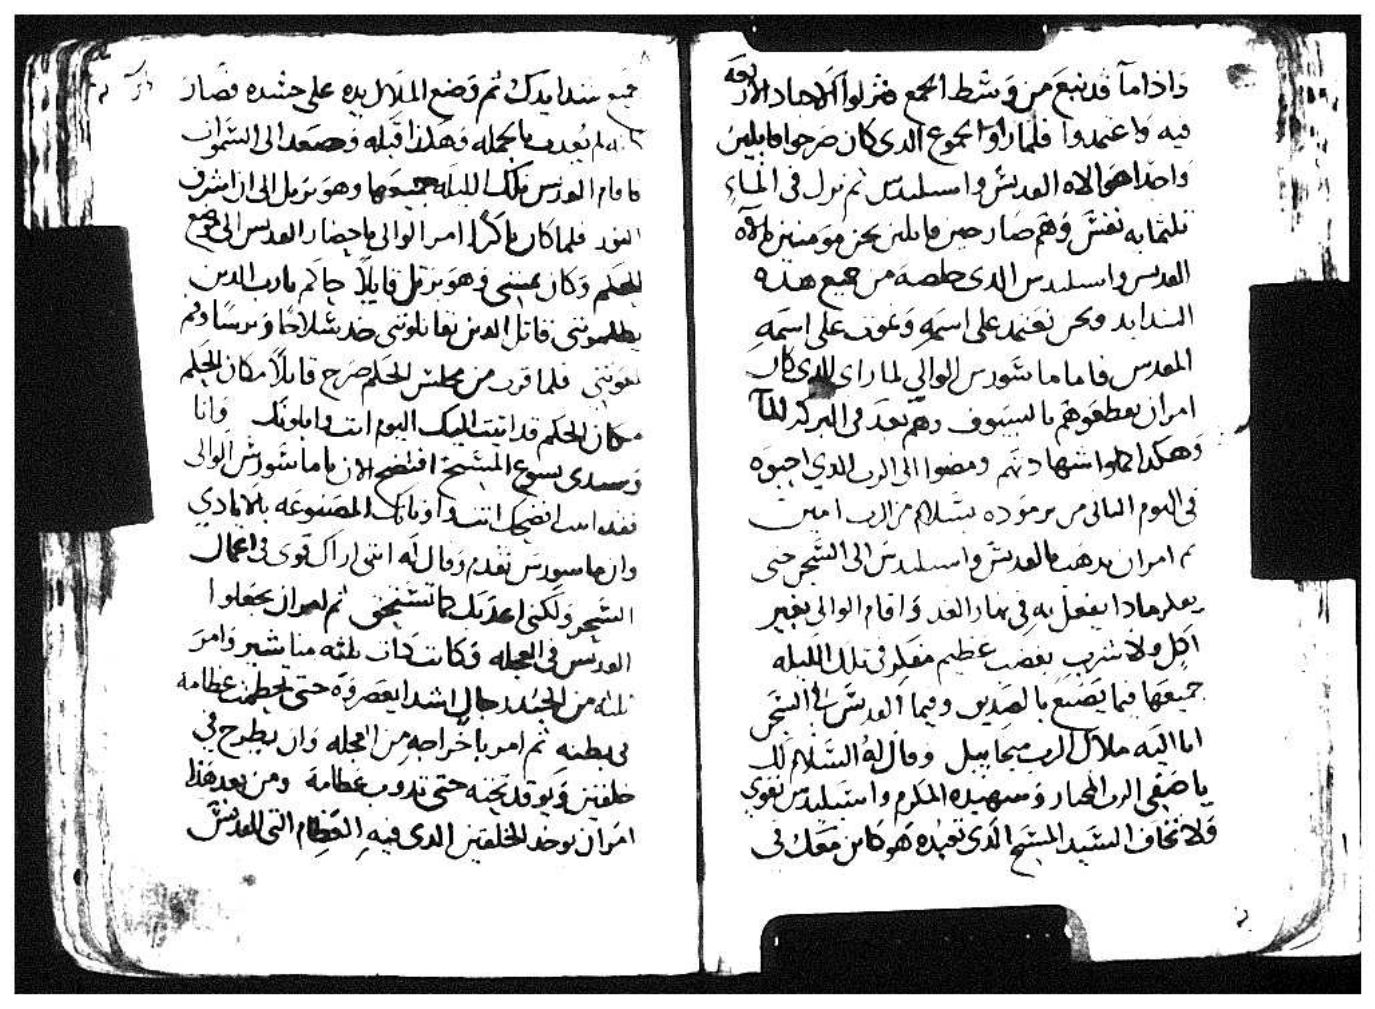 واذا مآ قد نبع من وشط الجمع فنزلوا الاجناد الاربعه
فيه واعتمدوا فلما راوا الجموع الدى كان صرخوا قايلين
واحدا هوا الاه القديس واسىليدس ثم نزل فى المآء
ثلثمايه نفس وهم صارخين قايلين نحن مومنين بالاه
القديس واسىليدس الدى خلصه من جميع هده
الشدايد ونحن نعتمد على اسمه وغوت على اسمه
المقدس فاما ماشورس الوالي لما راى الدى كان
امر ان يقطعوهم بالسيوف وهم بعد فى البركه الما
وهكدا اكملوا شهادتهم ومضوا الى الرب الدي احبوه
فى اليوم التانى من برموده بسلام من الرب امين
ثم امر ان يدهب بالقديس واسىليدس الى السجن حتى
يعلم مادا يفعل به فى نهار الغد واقام الوالى بغير
اكل ولا شرب بغضب عظيم مفكر فى تلك الليله
جميعها فيما يصنع بالصديق وفيما القديس فى السجن
اتا اليه ملاك الرب ميخاييل وقال له السلام لك
يا صفى الرب المختار وشهيده المكرم واسىليدس تقوي
ولا تخاف السيد المسيح الدى تعبده هو كاين معك فى
جميع شدايدك ثم وضع الملاك يده على جسده فصار
كانه لم يعدب بالجمله وهكدا قبله وصعد الى السموات
فاقام القديس تلك الليله جميعها وهو يرتل الى ان اشرف
النور فلما كان باكرا امر الوالى باحضار القديس الى موضع
الحكم وكان يمشي وهو يرتل قايلا حاكم يارب الدين
يظلموننى قاتل الدين يقاتلوننى خد سلاحا وترسا وقم
لعونتى فلما قرب من مجلس الحكم صرخ قايلا مكان الحكم
مكان الحكم قد اتيت اليك اليوم انت واباونك وانا
وسيدى يسوع المسيح افتضح الان يا ماشورس الوالى
فقد افتضحت انت واوثانك المصنوعه بالايادي
وان ماسورس تقدم وقال له اننى اراك قوى فى اعمال
السحر ولكنى اعدبك كما تستحق ثم امر ان يجعلوا
القديس فى العجله وكانت دات ثلثه مناشير وامر
ثلثه من الجند رجال اشدا يعصروه حتى تحطمت عظامه
فى بطنه ثم امر باخراجه من العجله وان يطرح فى
خلقين ويوقد تحته حتى تدوب عظامه ومن بعد هدا
امر ان يوخد الخلقين الدى فيه العظام التى للقديس